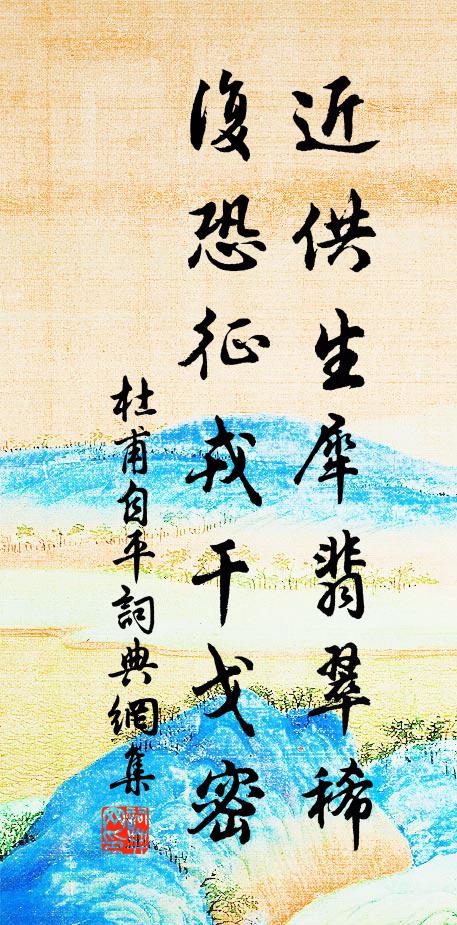 近供生犀翡翠稀
復恐征戎干戈密
杜甫自平詞典網集